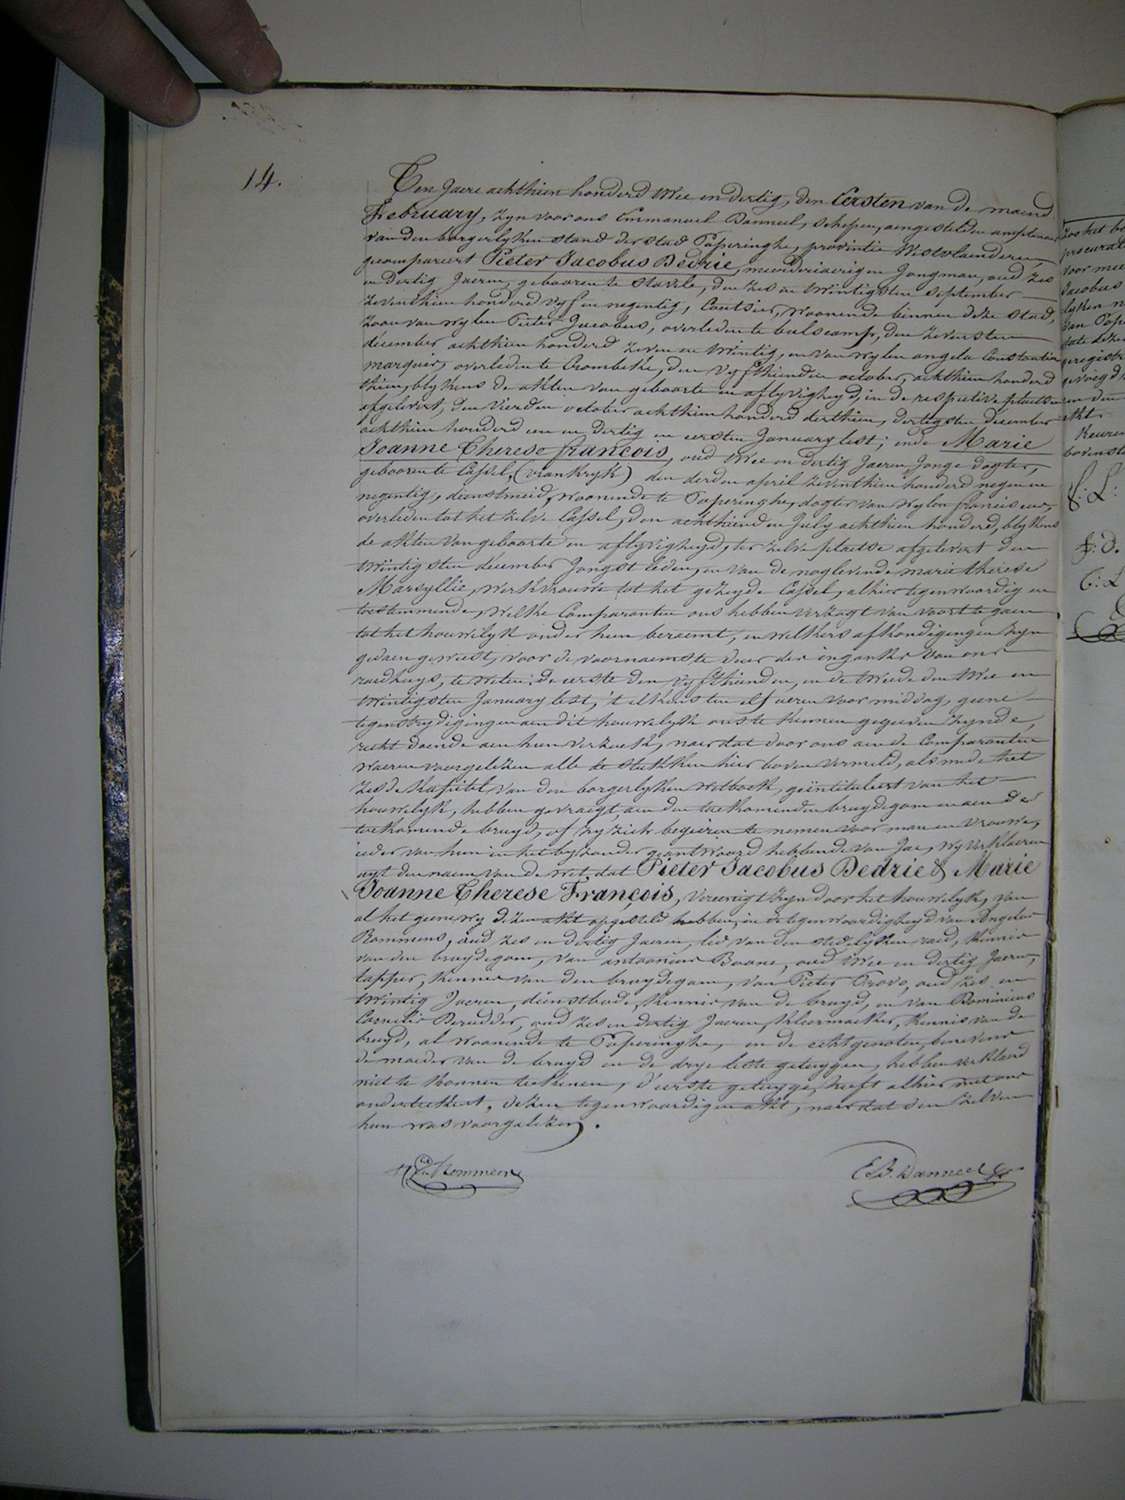 14.
Ten Jaere achthien honderd twee en dertig, den Eersten van de maend
February, zyn voor ons Emmanuel Danneel, schepen, aengestelden amptenaer
van den borgerlyken stand der stad Poperinghe, provintie Westvlaenderen,
gecompareert Pieter Jacobus Dedrie, meerderjaerigen Jongman, oud zes
en dertig Jaeren, gebooren te Stavele, den zes en twintigsten September
zeventhien honderd vyf en negentig, Coutsier, woonende binnen deze stad,
zoon van wylen Pieter Jacobus, overleden te bulscamp, den zevensten
december achthien honderd zeven en twintig, en van wylen angela Constantia
marquis, overleden te Crombeke, den vyfthienden october, achthien honderd
thien, blykens de akten van geboorte en aflyvigheyd, in de respective plaetsen
afgelevert, den vierden october achthien honderd derthien, dertigsten december
achthien honderd een en dertig en eersten January lest; ende Marie
Joanne Therese François, oud twee en dertig Jaeren, Jonge dogter,
gebooren te Cassel, (vrankryk) den derden april zeventhien honderd negen en
negentig, dienstmeid, woonende te Poperinghe, dogter van wylen francis
overleden tot het zelve Cassel, den achthienden July achthien honderd, blykens
de akten van geboorte en aflyvigheyd, ter zelve plaetse afgelevert den
twintigsten december Jongst leden, en van de noglevende marie therese
Marsyllie, werkvrouwe tot het gezeyde Cassel, alhier tegenwoordig en
toestemmende, welke Comparanten ons hebben verzogt van voort te gaen
tot het houwelyk onder hun beraemt, en welkers afkondigingen zyn
gedaen geweest, voor de voornaemste deur der ingank van ons
raedhuys, te weten; de eerste den vyfthienden, en de tweede den twee en
twintigsten January lest, 't elkens ten elf ueren voor middag, geene
tegenstrydigingen aen dit houwelyk ons te kennen gegeeven zynde,
recht doende aen hun verzoek, naer dat door ons aen de Comparanten
waeren voorgelezen alle de stukken hier boven vermeld, als mede het
zesde kapittel van den borgerlyken wetboek, geïntituleert van het
houwelyk, hebben gevraegt, aen den toekomenden bruydegom en aen de
toekomende bruyd, of zy zich begeiren te nemen voor man en vrouwe,
ieder van hun in het byzonder geantwoord hebbende van Jae, wy verklaeren
uyt den naem van de wet, dat Pieter Jacobus Dedrie & Marie
Joanne Therese François, vereenigt zyn door het houwelyk, van
al het geene wy dezen akt opgesteld hebben, in de tegenwoordigheyd van
Rommens, oud zes en dertig Jaeren, lid van den stedelyken raed, kennis
van den bruydegom, van antoonius Boone, oud twee en dertig Jaeren,
tapper, kennis van den bruydegom, van Pieter Provo, oud zes en
twintig Jaeren, dienstbode, kennis van de bruyd, en van Dominicus
Cornelis Derudder, oud zes en dertig Jaeren, kleermaeker, kennis van de
bruyd, al woonende te Poperinghe, en de echtgenoten, benevens
de moeder van de bruyd en de drye leste getuygen, hebben verklaerd
niet te konnen teekenen, d'eerste getuyge, heeft alhier met ons
onderteekent, dezen tegenwoordigen akt, naer dat den zelven
hun was voorgelezen.
Rommens
E. B. Danneel